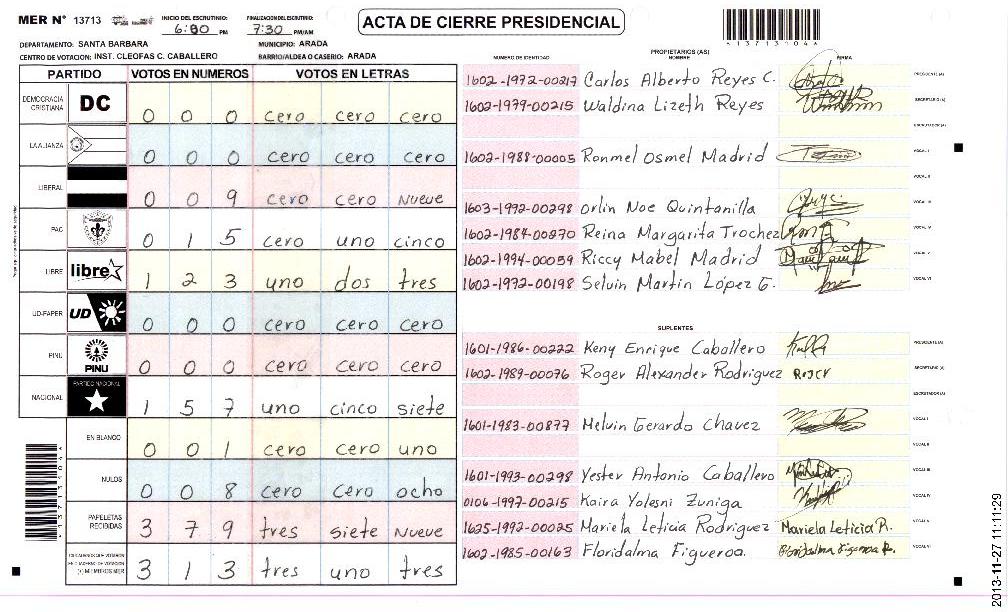 MER N° 13713
INICIO DEL ESCRUTINIO: 6:00 PM
FINALIZACIÓN DEL ESCRUTINIO: 7:30 PM/AM
ACTA DE CIERRE PRESIDENCIAL
DEPARTAMENTO: SANTA BARBARA
MUNICIPIO: ARADA
CENTRO DE VOTACION: INST. CLEOFAS C. CABALLERO
BARRIO/ALDEA O CASERIO: ARADA
PARTIDO VOTOS EN NUMEROS VOTOS EN LETRAS
DEMOCRACIA CRISTIANA DC 0 0 0 cero cero cero
LA ALIANZA 0 0 0 cero cero cero
LIBERAL 0 0 9 cero cero Nueve
PAC 0 1 5 cero uno cinco
LIBRE libre 1 2 3 uno dos tres
UD-FAPER UD 0 0 0 cero cero cero
PINU PINU 0 0 0 cero cero cero
NACIONAL PARTIDO NACIONAL 1 5 7 uno cinco siete
EN BLANCO 0 0 1 cero cero uno
NULOS 0 0 8 cero cero ocho
PAPELETAS RECIBIDAS 3 7 9 tres siete Nueve
CIUDADANOS QUE VOTARON EN CUADERNO DE VOTACION (+) MIEMBROS MER 3 1 3 tres uno tres
PROPIETARIOS (AS)
NUMERO DE IDENTIDAD NOMBRE FIRMA
1602-1972-00217 Carlos Alberto Reyes C. PRESIDENTE (A)
1602-1979-00215 Waldina Lizeth Reyes SECRETARIO (A)
ESCRUTADOR (A)
1602-1988-00005 Ronmel Osmel Madrid VOCAL I
VOCAL II
1603-1992-00298 Orlin Noe Quintanilla VOCAL III
1602-1984-00270 Reina Margarita Trochez VOCAL IV
1602-1994-00059 Riccy Mabel Madrid VOCAL V
1602-1972-00198 Selvin Martin López G. VOCAL VI
SUPLENTES
1601-1986-00222 Keny Enrique Caballero PRESIDENTE (A)
1602-1989-00076 Roger Alexander Rodriguez Roger SECRETARIO (A)
ESCRUTADOR (A)
1601-1983-00877 Melvin Gerardo Chavez VOCAL I
VOCAL II
1601-1993-00298 Yester Antonio Caballero VOCAL III
0106-1997-00215 Kaira Yolesni Zuniga VOCAL IV
1625-1992-00025 Mariela Leticia Rodriguez Mariela Leticia R. VOCAL V
1602-1985-00163 Floridalma Figueroa. VOCAL VI
2013-11-27 11:11:29